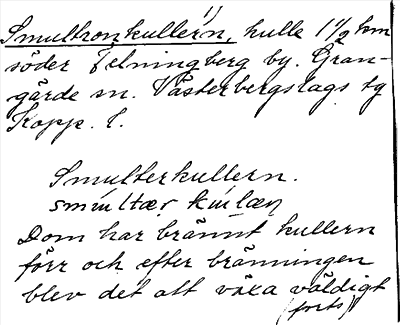 1)
Smultronkullern, kulle 1 1/2 km
söder Telningberg by. Gran-
gärde sn. Västerbergslags tg
Kopp. l.
Smulterkullern.
smúltær kúlæn
Dom har bränt kullern
förr och efter bränningen
blev det att växa väldigt
(forts)